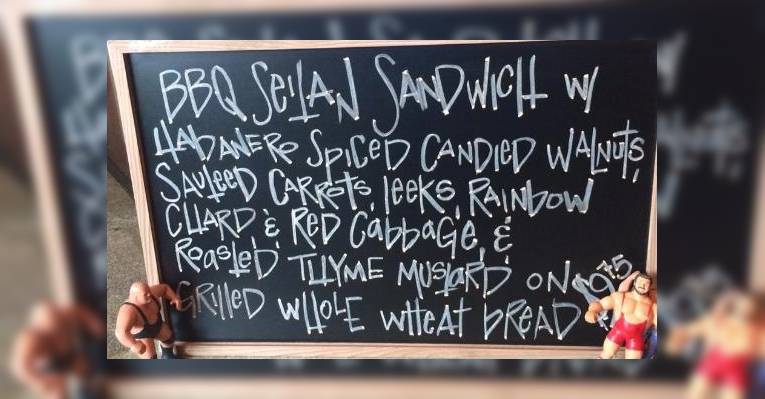 BBQ SEITAN SANDWICH W/
HABANERO SPICED CANDIED WALNUTS,
SAUTEED CARROTS, LEEKS, RAINBOW
CHARD & RED CABBAGE, &
ROASTED THYME MUSTARD ON
GRILLED WHOLE WHEAT BREAD $9.75